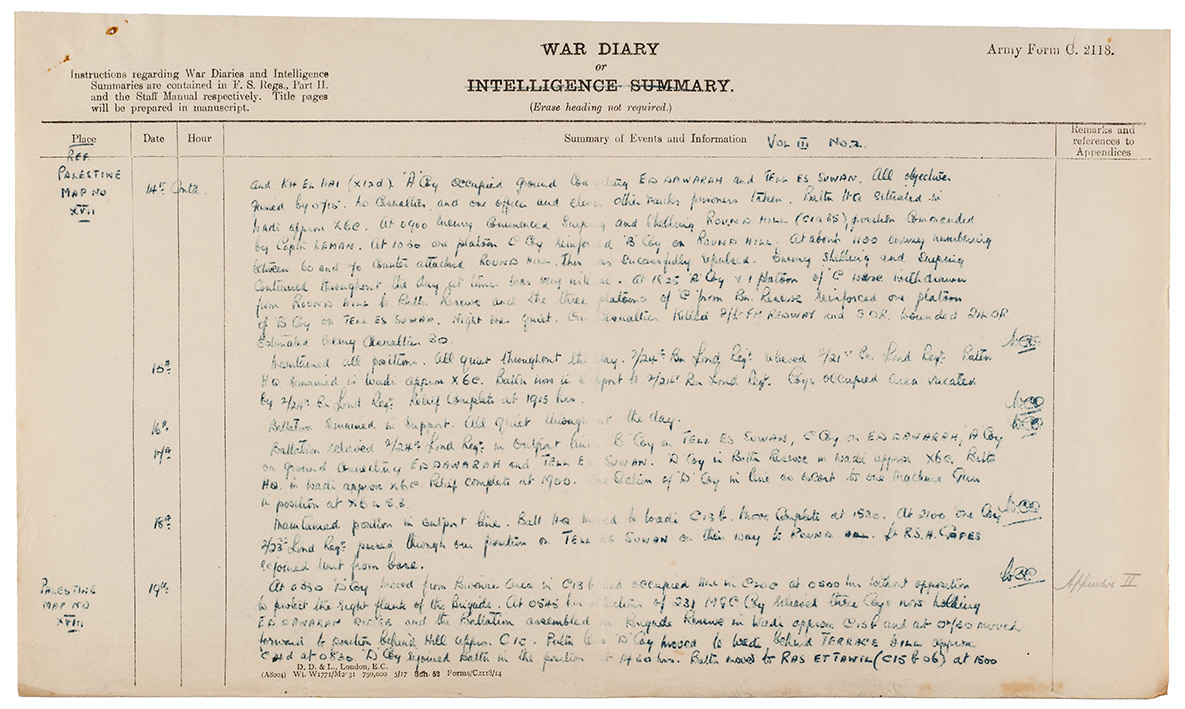 WAR DIARY
or
INTELLIGENCE SUMMARY.
(Erase heading not required.)
Army Form C. 2118.
Instructions regarding War Diaries and Intelligence
Summaries are contained in F. S. Regs., Part II.
and the Staff Manual respectively. Title pages
will be prepared in manuscript.
Place Date Hour Summary of Events and Information VOL III No. 2. Remarks and
references to
Appendices
REF.
PALESTINE
MAP NO
XVII
14th Contd. and KH EL HAI (X12d). 'A' Coy occupied ground connecting ED DAWARAH and TELL ES SUWAN. All objectives
gained by 0715. No casualties, and one officer and eleven other ranks prisoners taken. Battn HQ situated in
wadi approx X6C. At 0900 enemy commenced sniping and shelling ROUND HILL (C1a 85) position commanded
by Captn LEMAN. At 1030 one platoon 'C' Coy reinforced 'B' Coy on ROUND HILL. At about 1100 enemy numbering
between 60 and 70 counter attacked ROUND HILL. This was successfully repulsed. Enemy shelling and sniping
continued throughout the day, at times was very intense. At 1825 'D' Coy & 1 platoon of 'C' were withdrawn
from ROUND HILL to Battn Reserve and the three platoons of 'C' from Bn. Reserve reinforced one platoon
of 'B' Coy on TELL ES SUWAN. Night was quiet. Our casualties killed 2/Lt F.M REDWAY and 5 OR. wounded 24 OR
Estimated enemy casualties 20.
15th Maintained all positions. All quiet throughout the day. 2/24th Bn Lond Regt. relieved 2/21st Bn. Lond Regt. Battn
HQ remained in wadi approx X6C. Battn now in support to 2/24th Bn Lond Regt. Coys occupied area vacated
by 2/24th Bn Lond Regt. Relief complete at 1915 hrs.
16th Battalion remained in support. All quiet throughout the day.
17th Battalion relieved 2/24th Lond Regt. in outpost line. 'B' Coy on TELL ES SUWAN, 'C' Coy on ED DAWARAH, 'A' Coy
on ground connecting ED DAWARAH and TELL ES SUWAN. 'D' Coy in Battn Reserve in wadi approx X6C. Battn
HQ. in wadi approx X6C. Relief complete at 1900. One section of 'D' Coy in line as escort to one machine gun
in position at X6a 5.3.
18th Maintained position in outpost line. Batt HQ moved to wadi C13b. Move complete at 1530. At 2100 one Coy
2/23rd Lond Regt. passed through our position on TELL ES SUWAN on their way to ROUND HILL. Lt R.S.H. CAPES
rejoined unit from base.
PALESTINE
MAP NO
XVIII
19th At 0330 'D' Coy moved from Bivouac area in C13b and occupied line in C20C at 0500 hrs without opposition
to protect the right flank of the Brigade. At 0545 hrs sections of 231 MGC Coy relieved three Coys now holding
ED DAWARAH RIDGE and the Battalion assembled in Brigade Reserve in wadi approx C13b and at 0730 moved
forward to position behind Hill approx. C1C. Battn less 'D' Coy moved to wadi behind TERRACE HILL approx
at 0830 'D' Coy rejoined Battn in the position at 1430 hrs. Battn moved to RAS ET TAWIL (C15b 06) at 1500
Appendix II
D. D. & L., London, E.C.
(A8004) Wt. W1771/M2 31 750,000 5/17 Sch. 52 Forms/C2118/14